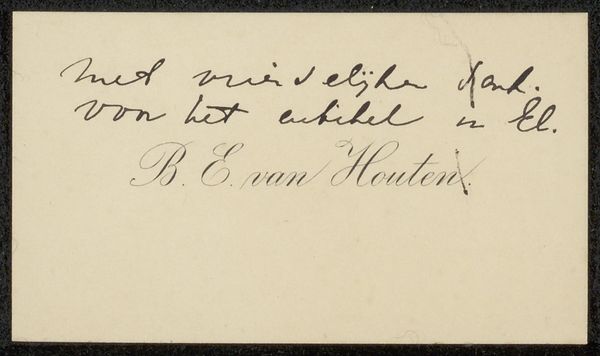 Met vriendelijken dank.
voor het artikel in El.
B. E. van Houten.